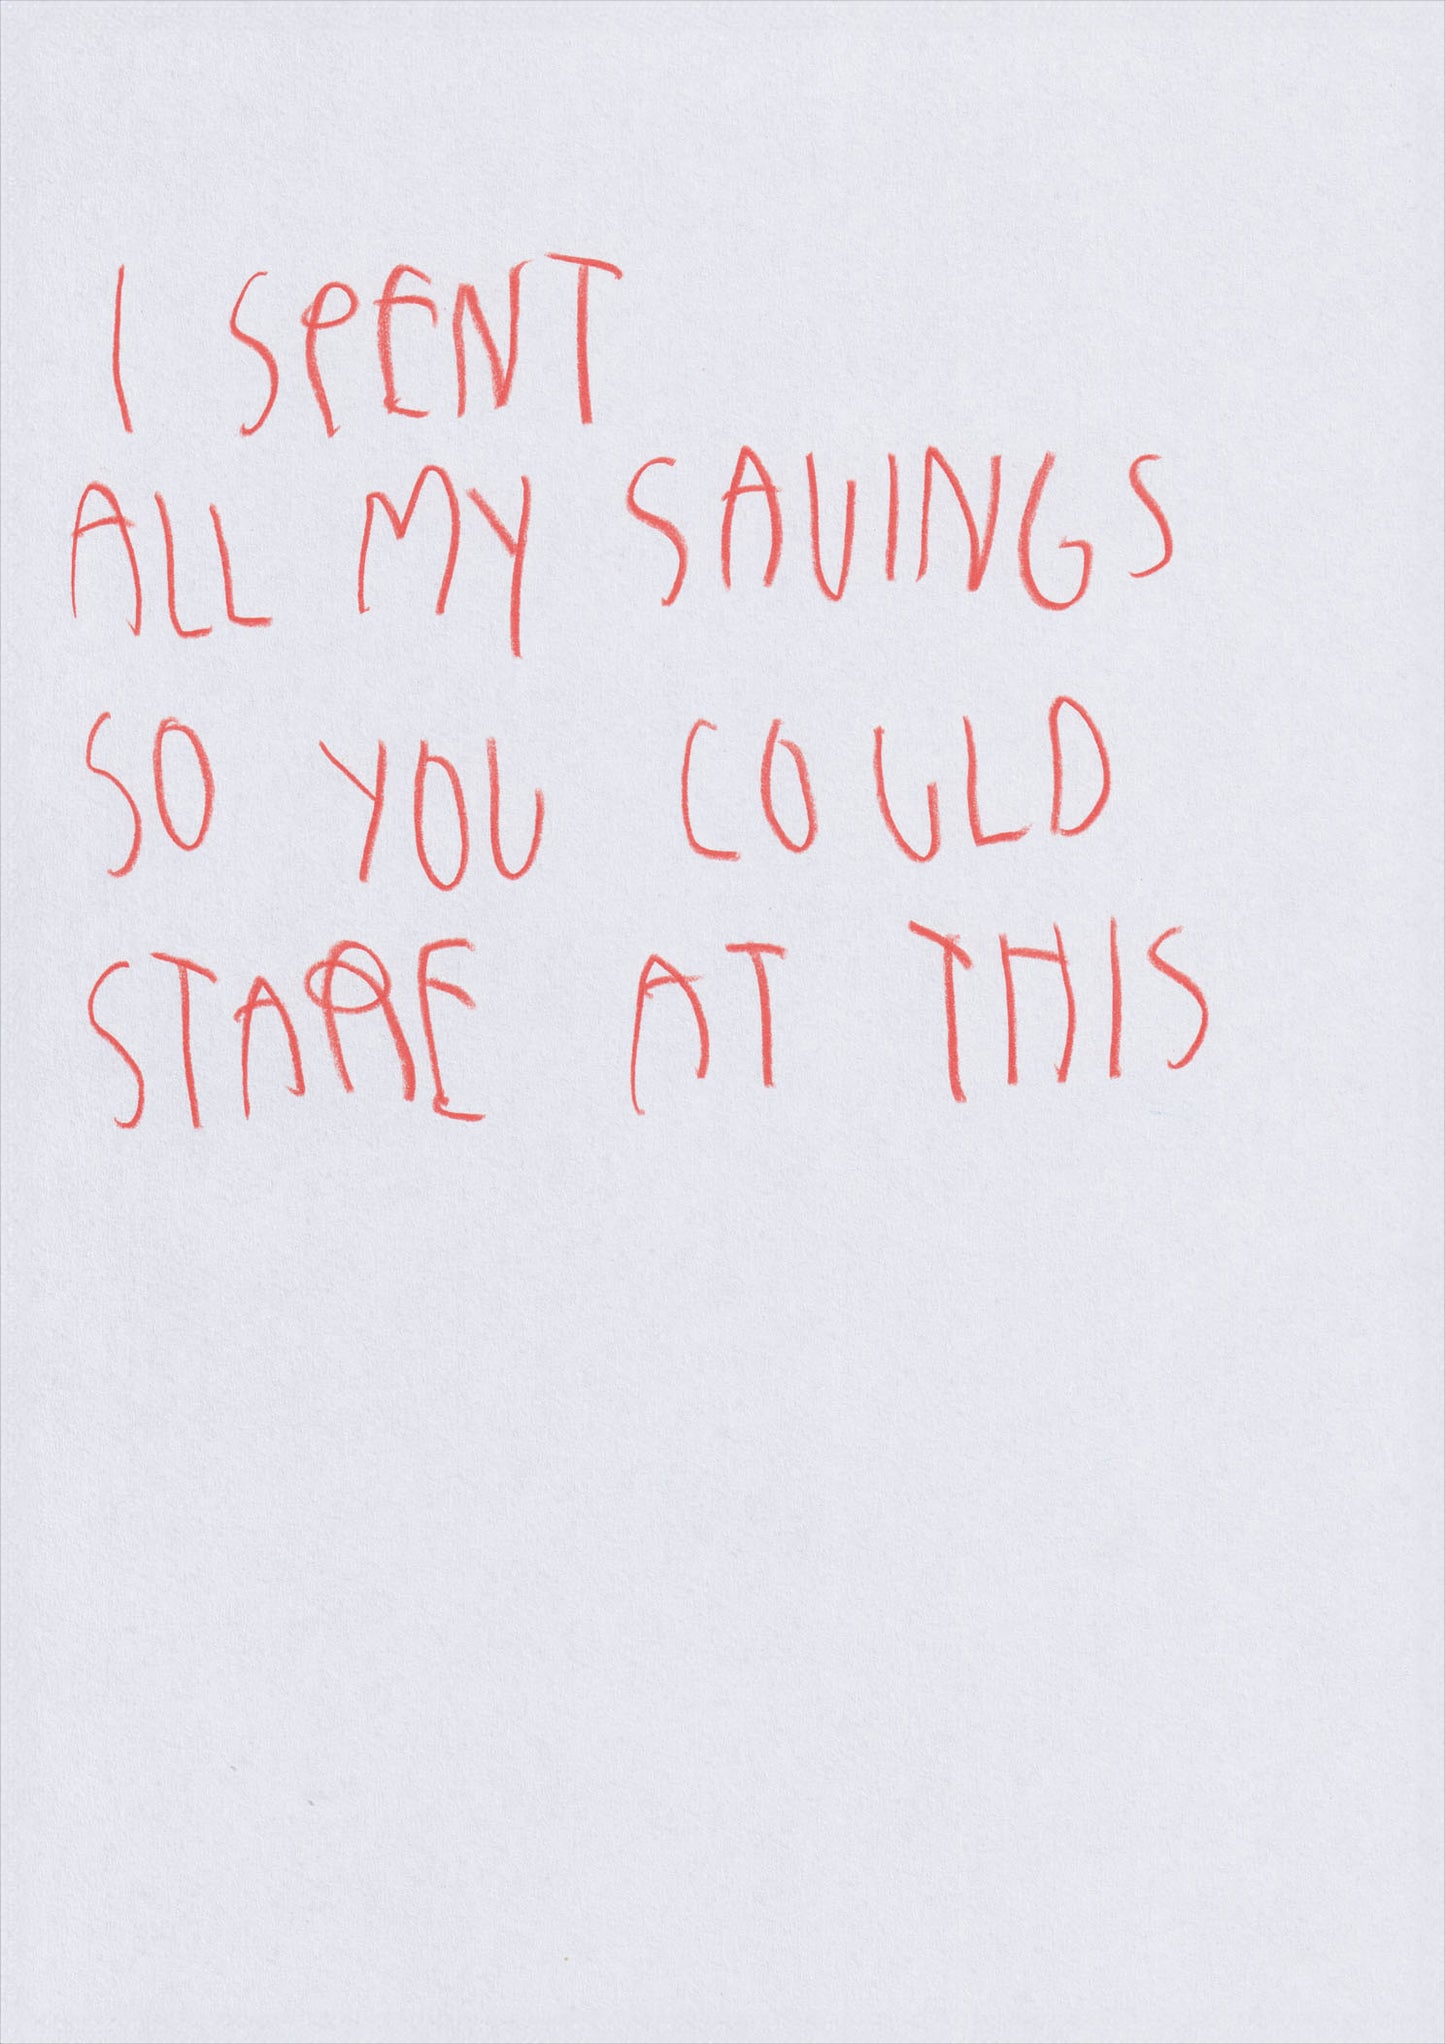 I SPENT
ALL MY SAVINGS
SO YOU COULD
STARE AT THIS